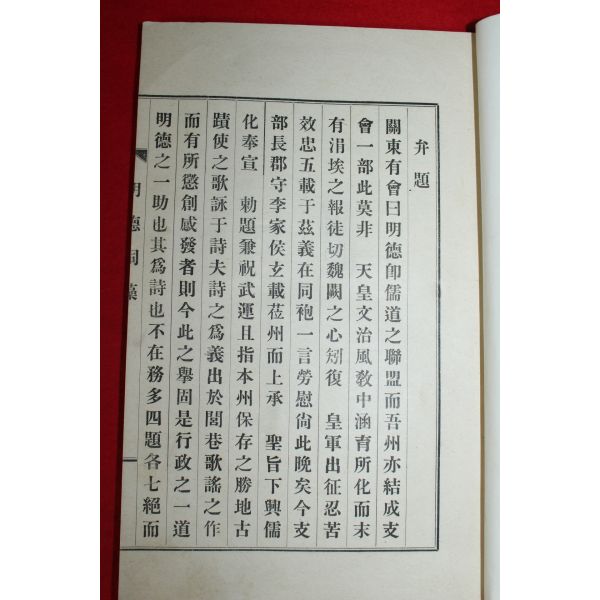 弁題
關東有會曰明德卽儒道之聯盟而吾州亦結成支
會一部此莫非　天皇文治風敎中涵育所化而末
有涓埃之報徒切魏闕之心矧復　皇軍出征忍苦
效忠五載于玆義在同袍一言勞慰尙此晩矣今支
部長郡守李家侯玄載莅州而上承　聖旨下興儒
化奉宣　勅題兼祝武運且指本州保存之勝地古
蹟使之歌詠于詩夫詩之爲義出於閭巷歌謠之作
而有所懲創感發者則今此之擧固是行政之一道
明德之一助也其爲詩也不在務多四題各七絕而
明德詞藻